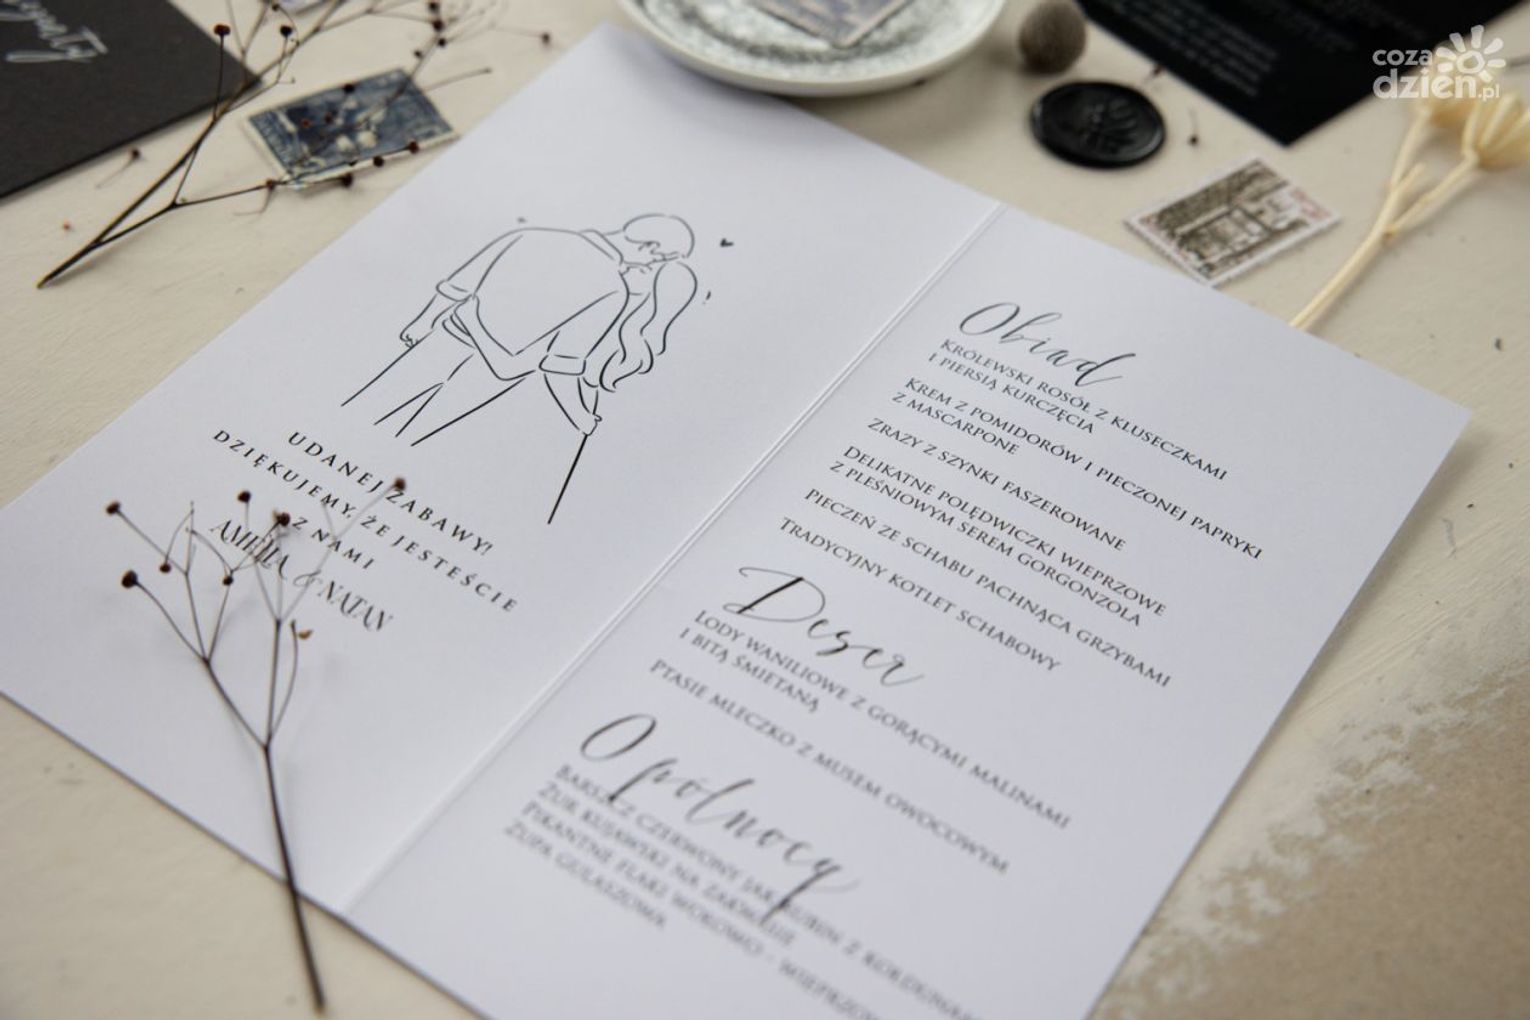 coza
dzień.pl
UDANEJ ZABAWY!
DZIĘKUJEMY, ŻE JESTEŚCIE
Z NAMI
AMELIA & NATAN
Obiad
KRÓLEWSKI ROSÓŁ Z KLUSECZKAMI
I PIERSIĄ KURCZĘCIA
KREM Z POMIDORÓW I PIECZONEJ PAPRYKI
Z MASCARPONE
ZRAZY Z SZYNKI FASZEROWANE
DELIKATNE POLĘDWICZKI WIEPRZOWE
Z PLEŚNIOWYM SEREM GORGONZOLA
PIECZEŃ ZE SCHABU PACHNĄCA GRZYBAMI
TRADYCYJNY KOTLET SCHABOWY
Deser
LODY WANILIOWE Z GORĄCYMI MALINAMI
I BITĄ ŚMIETANĄ
PTASIE MLECZKO Z MUSEM OWOCOWYM
O północy
BARSZCZ CZERWONY JAK RUBIN Z
ŻUR KUJAWSKI NA ZAKWASIE
PIKANTNE FLAKI WOŁOWO - WIEPRZOW
ZUPA GULASZOWA